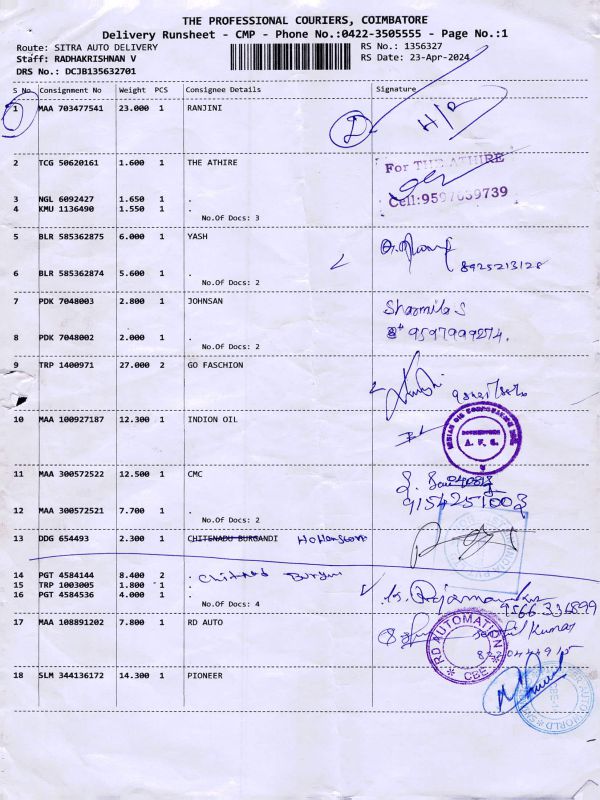 THE PROFESSIONAL COURIERS, COIMBATORE
Delivery Runsheet - CMP - Phone No.:0422-3505555 - Page No.:1
Route: SITRA AUTO DELIVERY RS No.: 1356327
Staff: RADHAKRISHNAN V RS Date: 23-Apr-2024
DRS No.: DCJB135632701
S No. Consignment No Weight PCS Consignee Details Signature
1 MAA 703477541 23.000 1 RANJINI H/P
2 TCG 50620161 1.600 1 THE ATHIRE For THE ATHIRE
3 NGL 6092427 1.650 1 .
4 KMU 1136490 1.550 1 .
No.Of Docs: 3
5 BLR 585362875 6.000 1 YASH
8925213128
6 BLR 585362874 5.600 1 .
No.Of Docs: 2
7 PDK 7048003 2.800 1 JOHNSAN Sharmila S
9597999274.
8 PDK 7048002 2.000 1 .
No.Of Docs: 2
9 TRP 1400971 27.000 2 GO FASCHION
10 MAA 100927187 12.300 1 INDION OIL
A. F. S.
11 MAA 300572522 12.500 1 CMC
9154251003
12 MAA 300572521 7.700 1 .
No.Of Docs: 2
13 DDG 654493 2.300 1 CHITENADU BURGANDI
14 PGT 4584144 8.400 2 .
15 TRP 1003005 1.800 1 .
16 PGT 4584536 4.000 1 .
No.Of Docs: 4
9566336899
17 MAA 108891202 7.800 1 RD AUTO
RD AUTOMATION
CBE
18 SLM 344136172 14.300 1 PIONEER